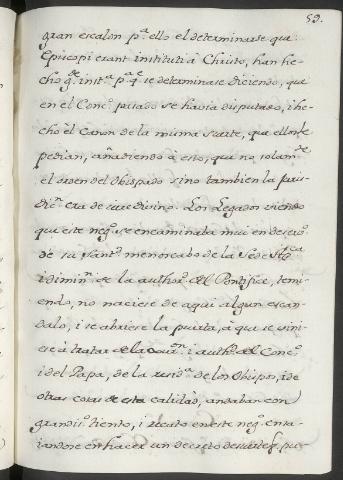 59.
gran escalon p.ª ello el determinarse que
Episcopi erant instituti à Christo, han he-
cho g.de inst.ª p.ª q.e se determinase diciendo, que
en el Conc.o pasado se havia disputado, i he-
cho el Canon de la misma suerte, que ellos le
pedian, añadiendo à esto, que no solam.te
el orden del Obispado sino tambien la Juris-
dic.n era de iure divino. Los Legados viendo
que este neg.o se encaminaba mui en deserv.o
de su Sant.d menoscabo de la Sede
i dimin.n de la author.d del Pontifice, temi-
endo, no naciese de aqui algun escan-
dalo, i se abriese la puerta, à que se vini-
ese à tratar de la i auth.d del Conc.o
i del Papa, de la resid.ª de los Obispos, i de
otras cosas de esta calidad, andaban con
grandis.o tiento, i recato en este neg.o ensa-
iandose en hacer un decreto de suerte, que